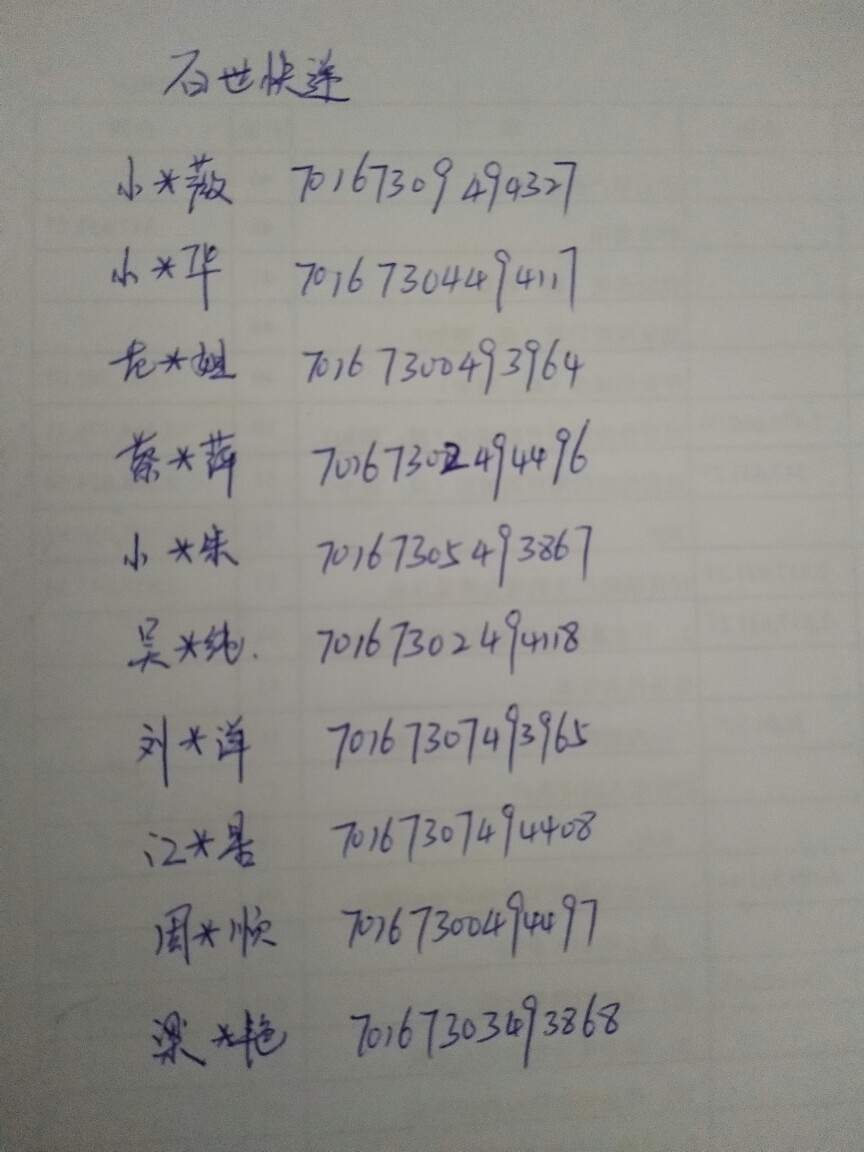 百世快递
小*薇 70167309494327
小*华 70167304494117
老*姐 70167300493964
蔡*萍 70167302494496
小*朱 70167305493867
吴*纯. 70167302494118
刘*洋 70167307493965
江*君 70167307494408
周*顺 70167300494497
梁*艳 70167303493868